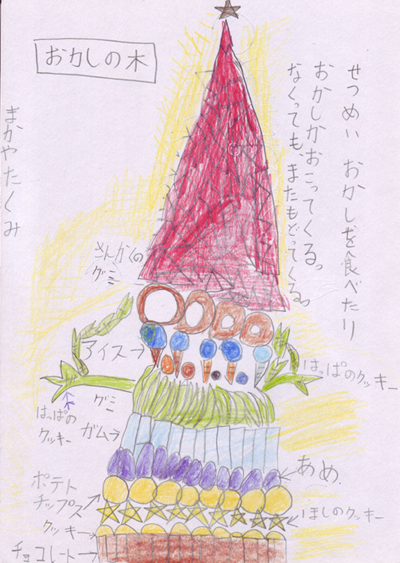 おかしの木
せつめい おかしを食べたり
おかしがおこってくる。
なくっても、またもどってくる。
まかやたくみ
さんかくの
グミ
アイス
はっぱのクッキー
はっぱの
クッキー
グミ
ガム
あめ
ポテト
チップス
ほしのクッキー
クッキー
チョコレート